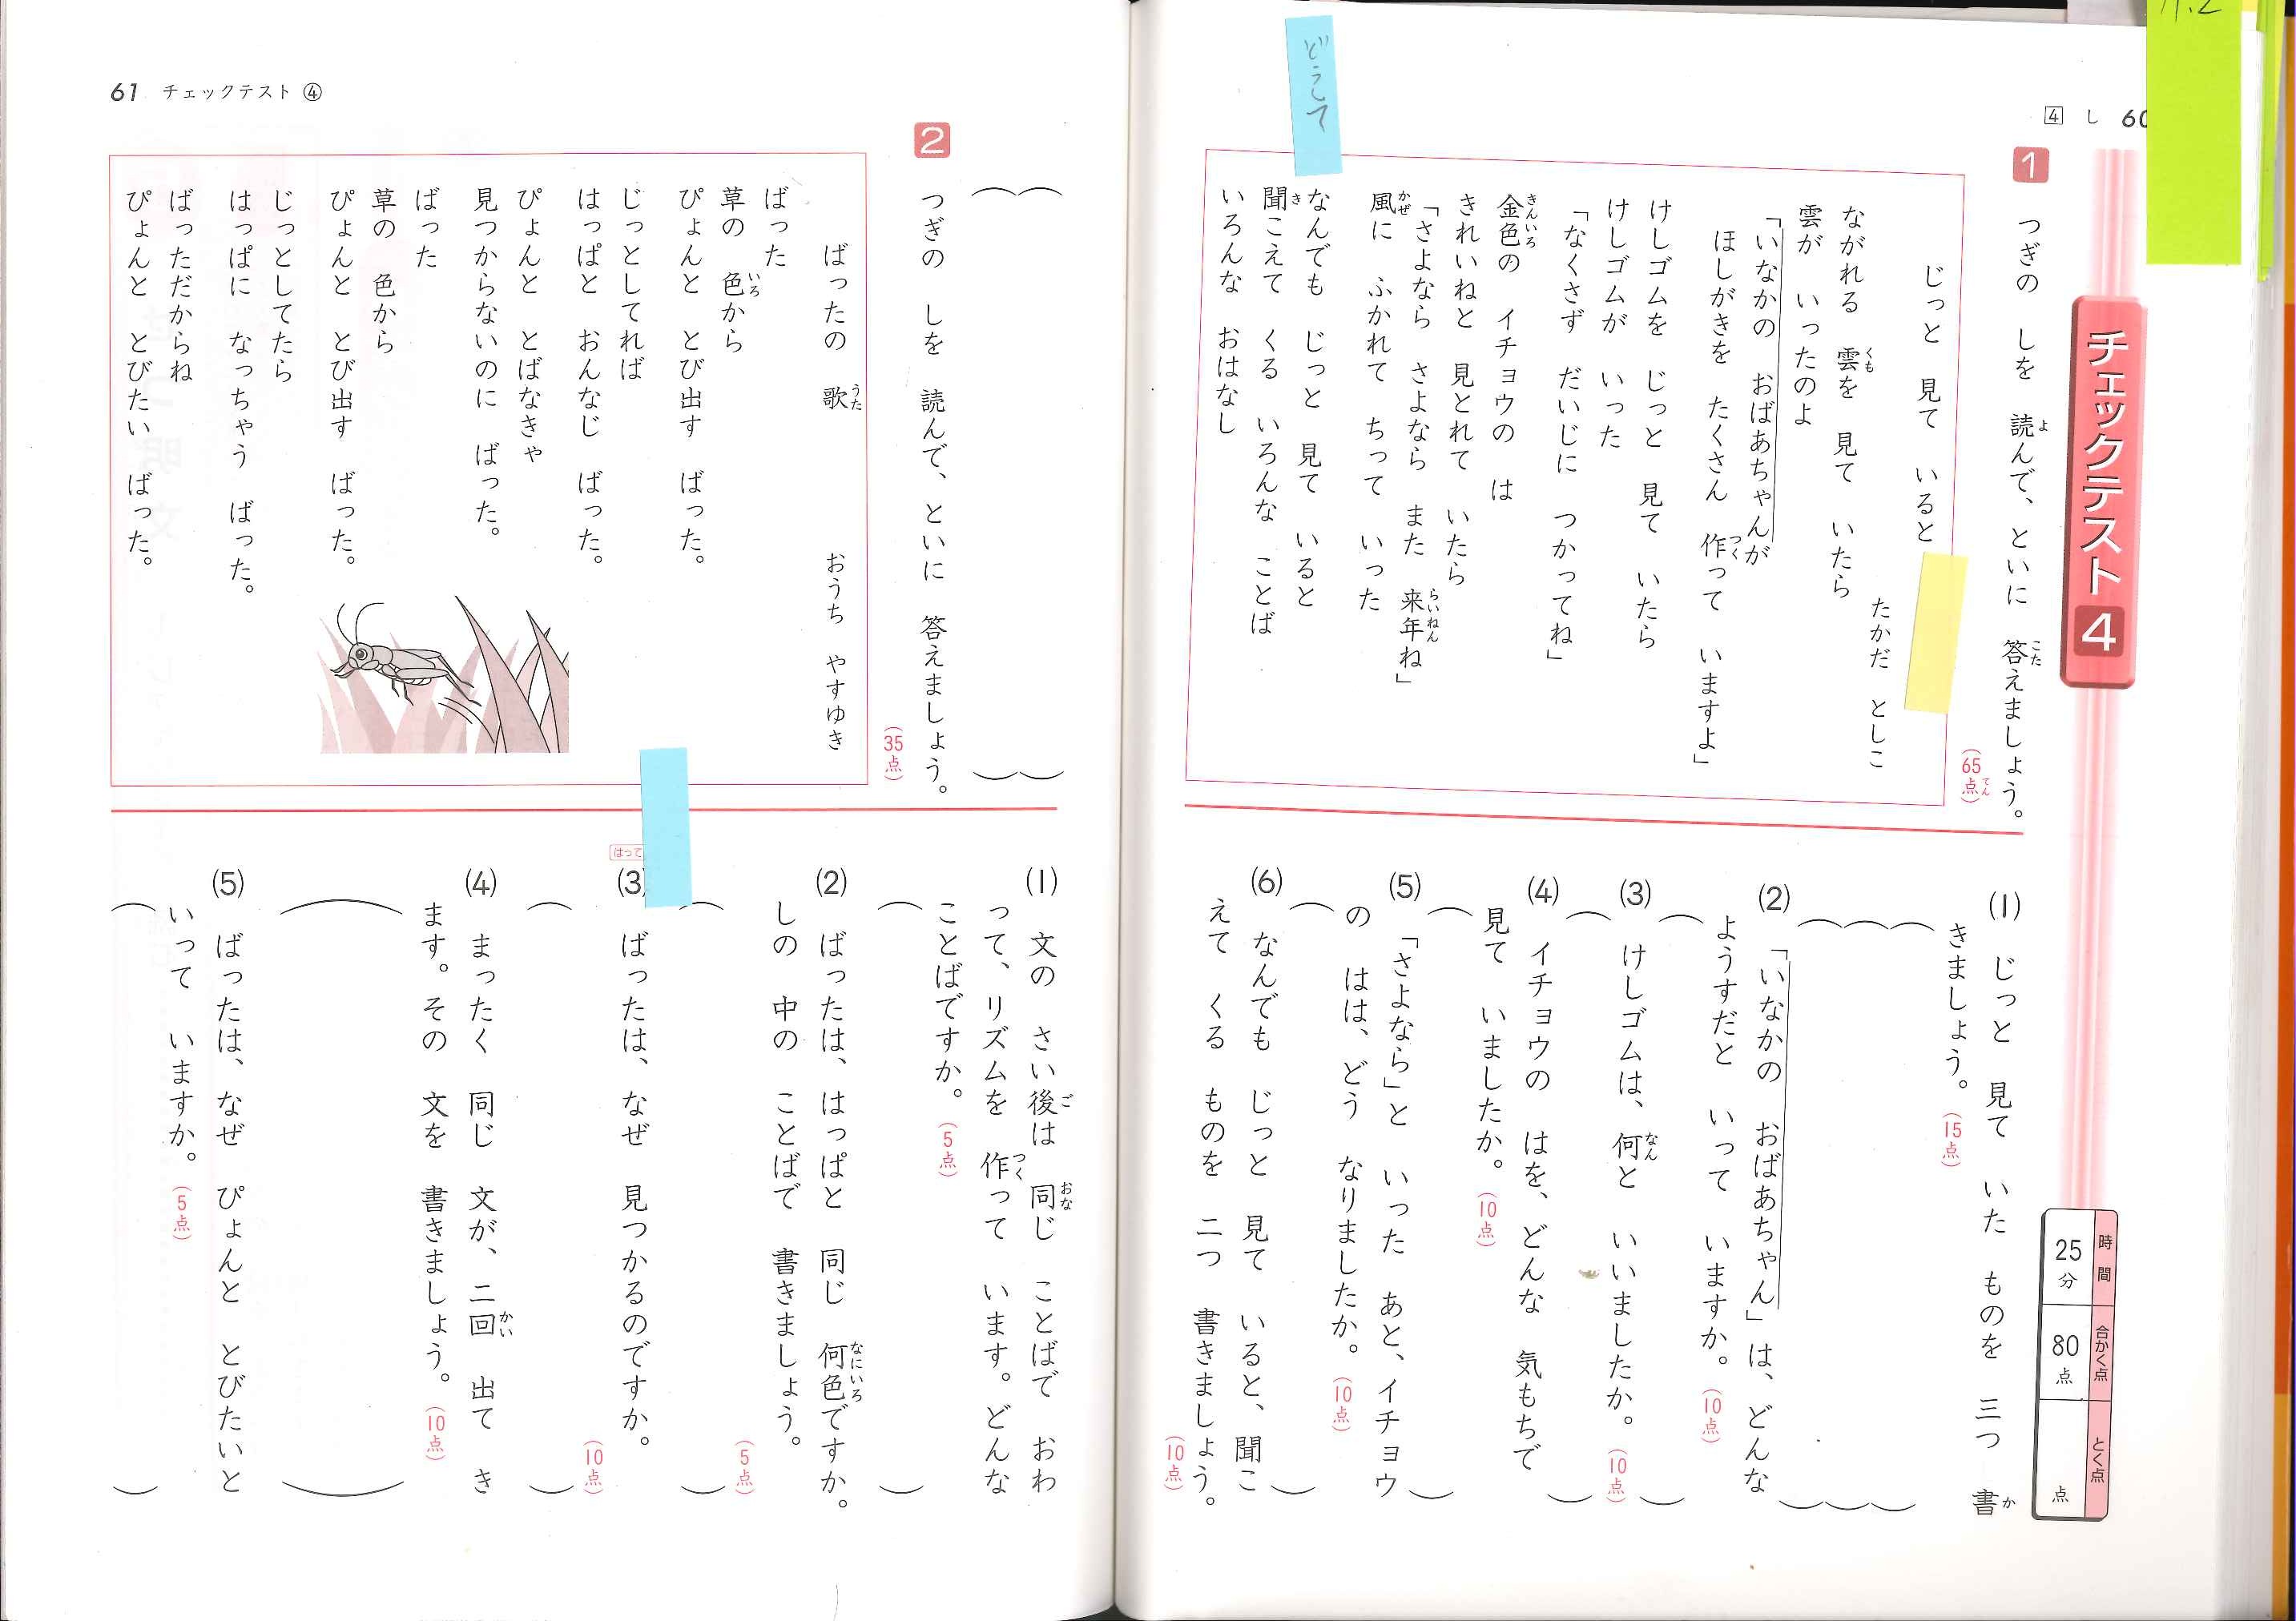 4 し 60
チェックテスト 4
時間 25分
合かく点 80点
とく点 点
1 つぎの しを 読んで、といに 答えましょう。
(65点)
じっと 見て いると
たかだ としこ
ながれる 雲を 見て いたら
雲が いったのよ
「いなかの おばあちゃんが
ほしがきを たくさん 作って いますよ」
けしゴムを じっと 見て いたら
けしゴムが いった
「なくさず だいじに つかってね」
金色の イチョウの は
きれいねと 見とれて いたら
「さよなら さよなら また 来年ね」
風に ふかれて ちって いった
なんでも じっと 見て いると
聞こえて くる いろんな ことば
いろんな おはなし
どうして
(1) じっと 見て いた ものを 三つ 書
きましょう。(15点)
(2) 「いなかの おばあちゃん」は、どんな
ようすだと いって いますか。(10点)
(3) けしゴムは、何と いいましたか。(10点)
(4) イチョウの はを、どんな 気もちで
見て いましたか。(10点)
(5) 「さよなら」と いった あと、イチョウ
の はは、どう なりましたか。(10点)
(6) なんでも じっと 見て いると、聞こ
えて くる ものを 二つ 書きましょう。
(10点)
61 チェックテスト ④
2 つぎの しを 読んで、といに 答えましょう。
(35点)
ばったの 歌
おうち やすゆき
ばった
草の 色から
ぴょんと とび出す ばった。
じっとしてれば
はっぱと おんなじ ばった。
ぴょんと とばなきゃ
見つからないのに ばった。
ばった
草の 色から
ぴょんと とび出す ばった。
じっとしてたら
はっぱに なっちゃう ばった。
ばっただからね
ぴょんと とびたい ばった。
(1) 文の さい後は 同じ ことばで おわ
って、リズムを 作って います。どんな
ことばですか。(5点)
(2) ばったは、はっぱと 同じ 何色ですか。
しの 中の ことばで 書きましょう。
(5点)
はって
(3) ばったは、なぜ 見つかるのですか。
(10点)
(4) まったく 同じ 文が、二回 出て き
ます。その 文を 書きましょう。(10点)
(5) ばったは、なぜ ぴょんと とびたいと
いって いますか。(5点)